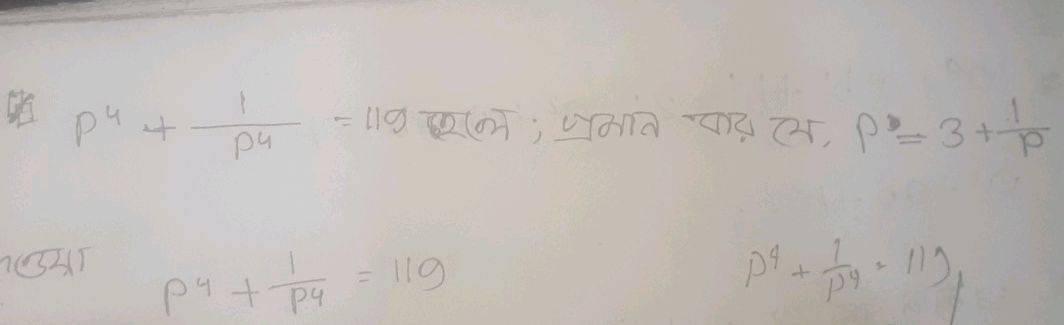 p⁴ + 1/p⁴ = 119 হলে; প্রমান কর যে, p = 3 + 1/p
p⁴ + 1/p⁴ = 119 p⁴ + 1/p⁴ = 119,